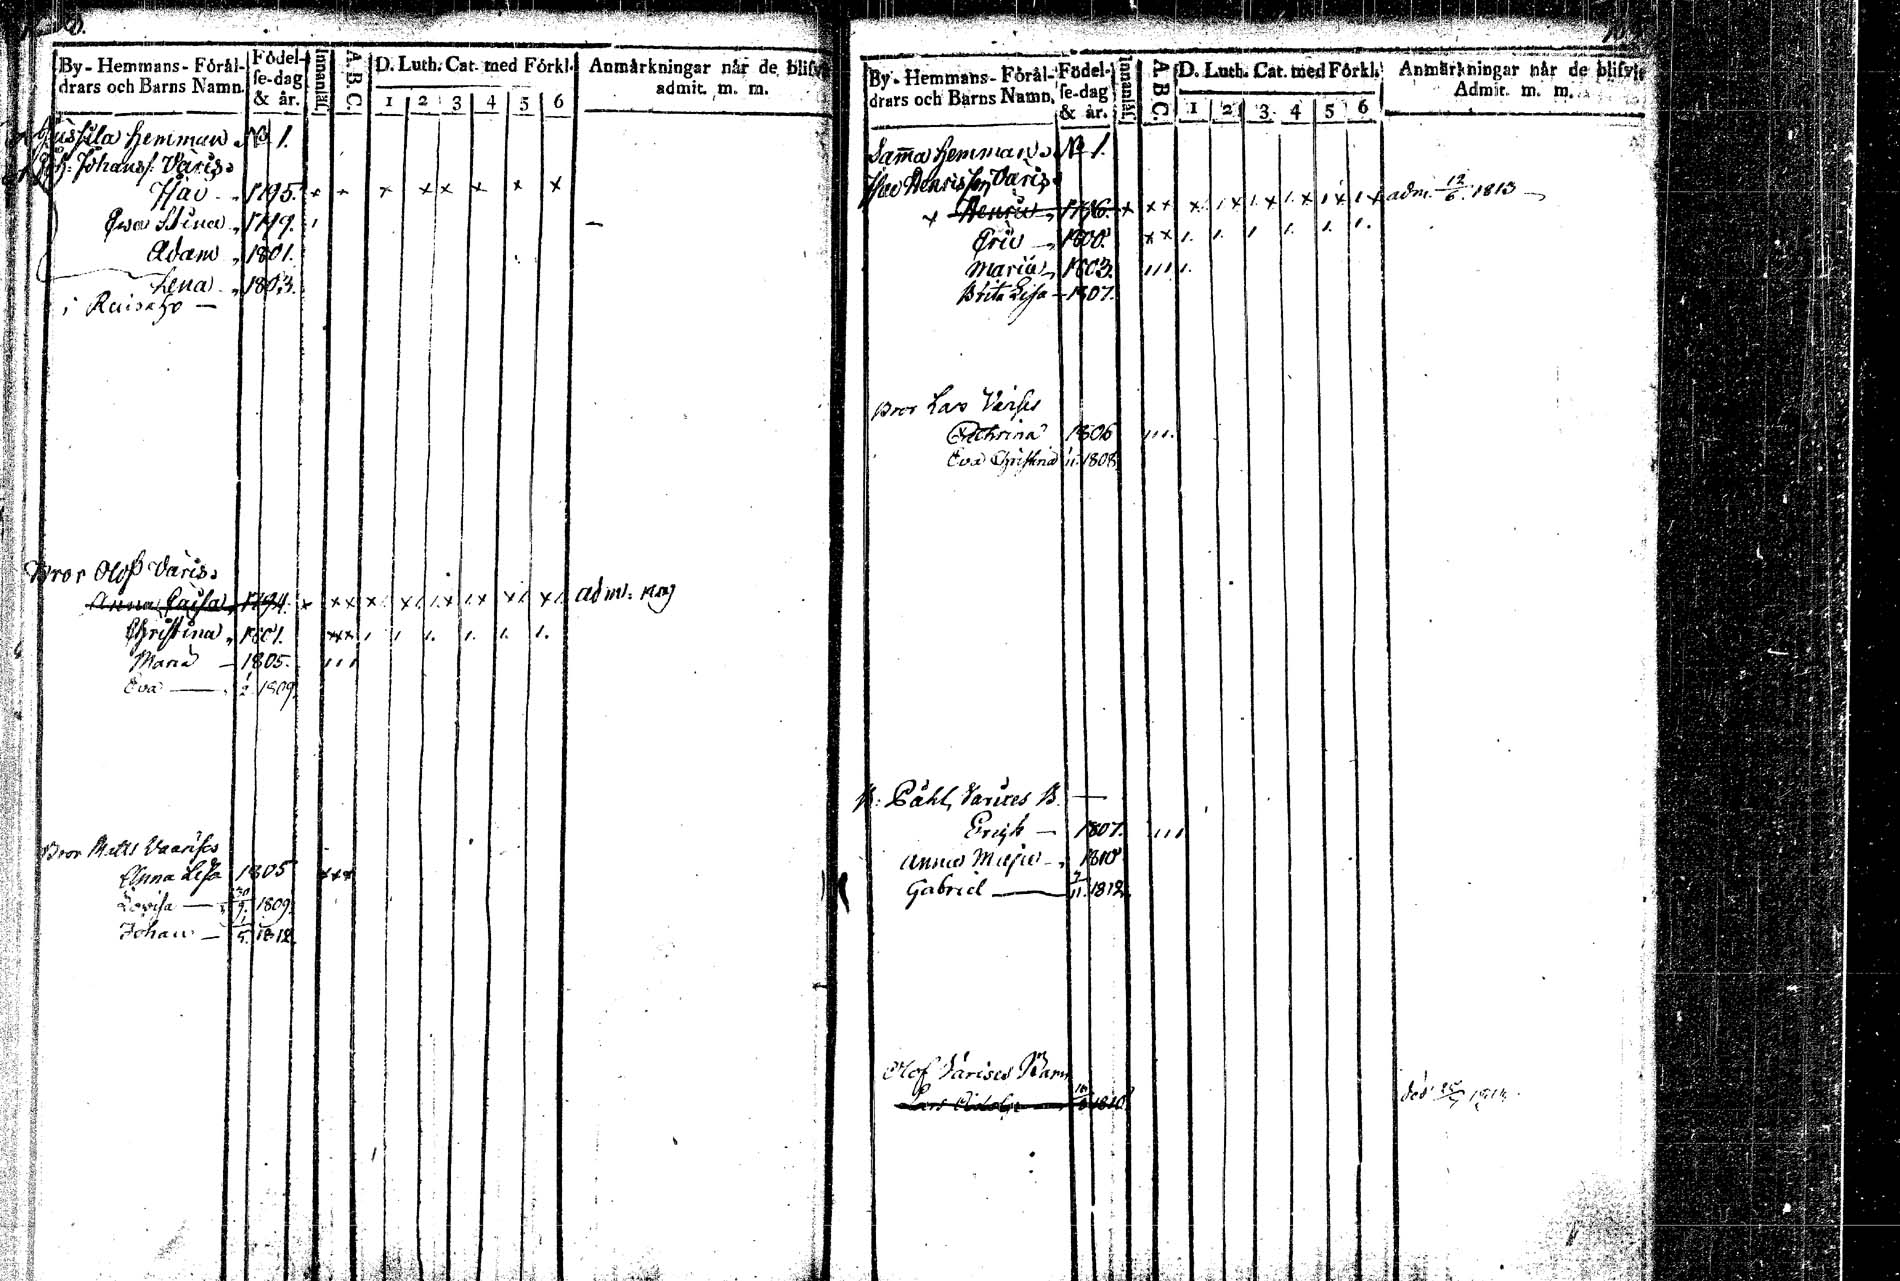 By- Hemmans- Förål-
drars och Barns Namn.
Födel-
se-dag
& år.
Innanläs.
A. B. C.
D. Luth. Cat. med Förkl.
1 2 3 4 5 6
Anmärkningar når de blifvit
admit. m. m.
hemman. No 1.
Johanss. Varis.
Isac 1795.
Ewa Stina 1799.
Adam 1801.
Lena 1803.
Bror Olof Varis.
Anna Caisa 1794. adm:
Christina 1801.
Maria 1805.
Eva 1809.
Bror Matts Vaarises
Anna Lisa 1805
Lovisa 30/9. 1809.
Johan 1/5. 1812.
By- Hemmans- Förål-
drars och Barns Namn.
Födel-
se-dag
& år.
Innanläs.
A. B. C.
D. Luth. Cat. med Förkl.
1 2 3 4 5 6
Anmärkningar når de blifvit
Admit. m. m.
Samma hemman. No 1.
Isac Henrisson Varis.
Henric 1796. adm. 12/6. 1813
Eric 1800.
Maria 1803.
Brita Lisa 1807.
Bror Lars Varises
Cathrina 1806
Eva Christina 1808
B: Påhl Varises B.
Erich 1807.
Anna Maja 1810
Gabriel 7/11. 1812.
Olof Varises Barn
1810
död